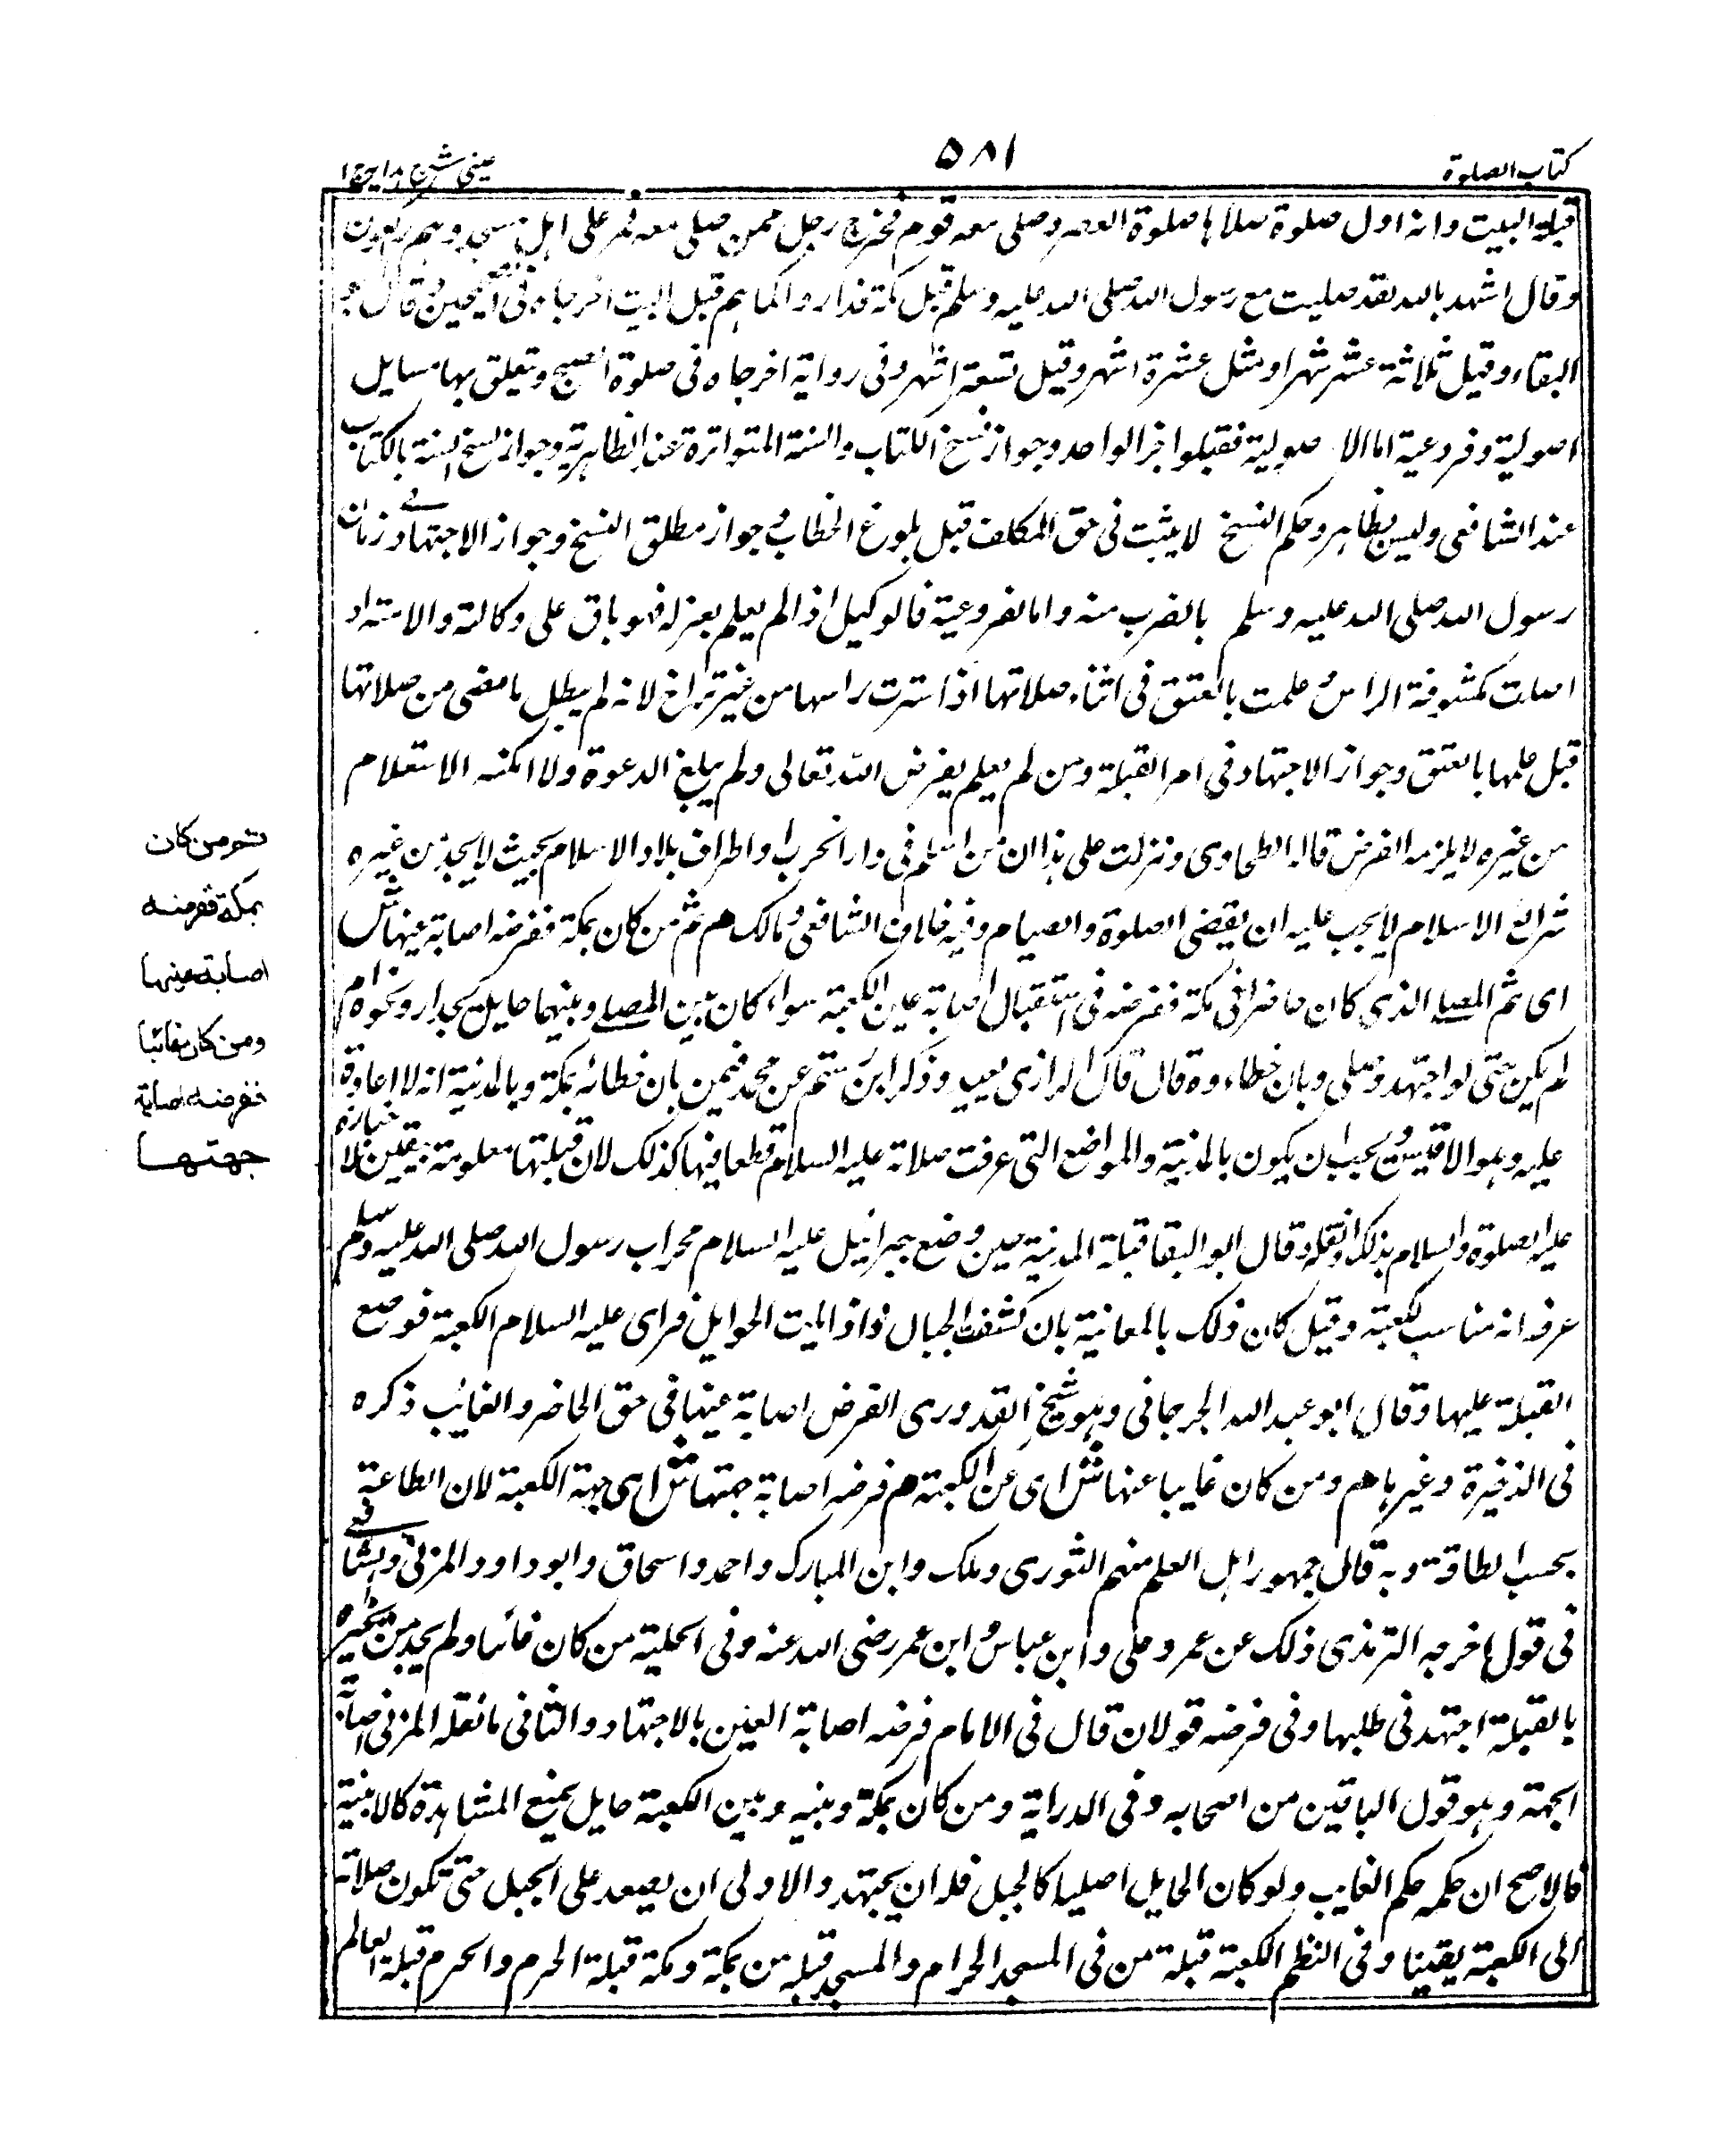 كتاب الصلوة
٥٨١
عينى شرح هداية ج ١
قبلة البيت وانه اول صلوة صلاها صلوة العصر وصلى معه قوم فخرج رجل ممن صلى معه فمر على اهل مسجد وهم راكعون
وقال اشهد بالله لقد صليت مع رسول الله صلى الله عليه وسلم قبل مكة فداروا كما هم قبل البيت اخرجاه فى الصحيحين وقال ابو
البقاء وقيل ثلاثة عشر شهرا ومثل عشرة اشهر وقيل تسعة اشهر وفى رواية اخرجاه فى صلوة الصبح وتعلق بها مسايل
اصولية وفروعية اما الاصولية فقبلوا خبر الواحد وجواز نسخ الكتاب والسنة المتواترة عند الظاهرية وجواز نسخ السنة بالكتاب
عند الشافعى وليس بظاهر وحكم النسخ لا يثبت فى حق المكلف قبل بلوغ الخطاب وجواز مطلق النسخ وجواز الاجتهاد فى زمان
رسول الله صلى الله عليه وسلم بالضرب منه واما الفروعية فالوكيل اذا لم يعلم بعزله فهو باق على وكالته والامة اد
اصلت مكشوفة الراس وعلمت بالعتق فى اثناء صلاتها اذا سترت راسها من غير تراخ لانه لم يبطل ما مضى من صلاتها
قبل علمها بالعتق وجواز الاجتهاد فى امر القبلة ومن لم يعلم بفرض الله تعالى ولم يبلغ الدعوة ولا امكنه الاستعلام
من غيره لا يلزمه الفرض قاله الطحاوى ونزلت على هذا ان من اسلم فى دار الحرب او اطراف بلاد الاسلام بحيث لا يجد من غيره
شرائع الاسلام لا يجب عليه ان يقضى الصلوة والصيام وفيه خلاف الشافعى ومالك م ثم من كان بمكة ففرضه اصابة عينها ش
اى ثم المصلى الذى كان حاضرا فى مكة ففرضه فى استقبال اصابة عين الكعبة سواء كان بين المصلى وبينها حايل كجدار ونحوه ام
لم يكن حتى لو اجتهد وصلى وبان خطاءه قال قال الرازى يعيد وذكر ابن رستم عن محمد فيمن بان خطائه بمكة وبالمدينة انه لا اعادة
عليه وهو الاقيس ويجب ان يكون بالمدينة والمواضع التى عرفت صلاته عليه السلام قطعا فيها كذلك لان قبلتها معلومة بيقين لاخباره
عليه الصلوة والسلام بذلك او نقله وقال ابو البقا قبلة المدينة حين وضع جبرائيل عليه السلام محراب رسول الله صلى الله عليه وسلم
عرف انه مناسب لكعبة وقيل كان ذلك بالمعانية بان كشفت الجبال واذا ليت الحوايل فراى عليه السلام الكعبة فوضع
القبلة عليها وقال ابو عبد الله الجرجانى وهو شيخ القدورى الفرض اصابة عينها فى حق الحاضر والغائب ذكره
فى الذخيرة وغيرها م ومن كان غايبا عنها ش اى عن الكعبة م فرضه اصابة جهتها ش اى جهة الكعبة لان الطاعة
بحسب الطاقة وبه قال جمهور اهل العلم منهم الثورى وملك وابن المبارك واحمد واسحاق وابو داود والمزنى والشافعى
فى قول اخرجه الترمذى ذلك عن عمر وعلى وابن عباس وابن عمر رضى الله عنه وفى الحلية من كان غائبا ولم يجد من يخبره
بالقبلة اجتهد فى طلبها وفى فرضه قولان قال فى الامام فرضه اصابة العين بالاجتهاد والثانى ما نقله المزنى اصابة
الجهة وهو قول الباقين من اصحابه وفى الدراية ومن كان بمكة وبينه وبين الكعبة حايل يمنع المشاهدة كالابنية
فالاصح ان حكمه حكم الغايب ولو كان الحايل اصليا كالجبل فله ان يجتهد والاولى ان يصعد على الجبل حتى تكون صلاته
الى الكعبة يقينا وفى النظم الكعبة قبلة من فى المسجد الحرام والمسجد قبلة من بمكة ومكة قبلة الحرم والحرم قبلة العالم
ثم من كان
بمكة ففرضه
اصابة عينها
ومن كان غائبا
ففرضه اصابة
جهتها